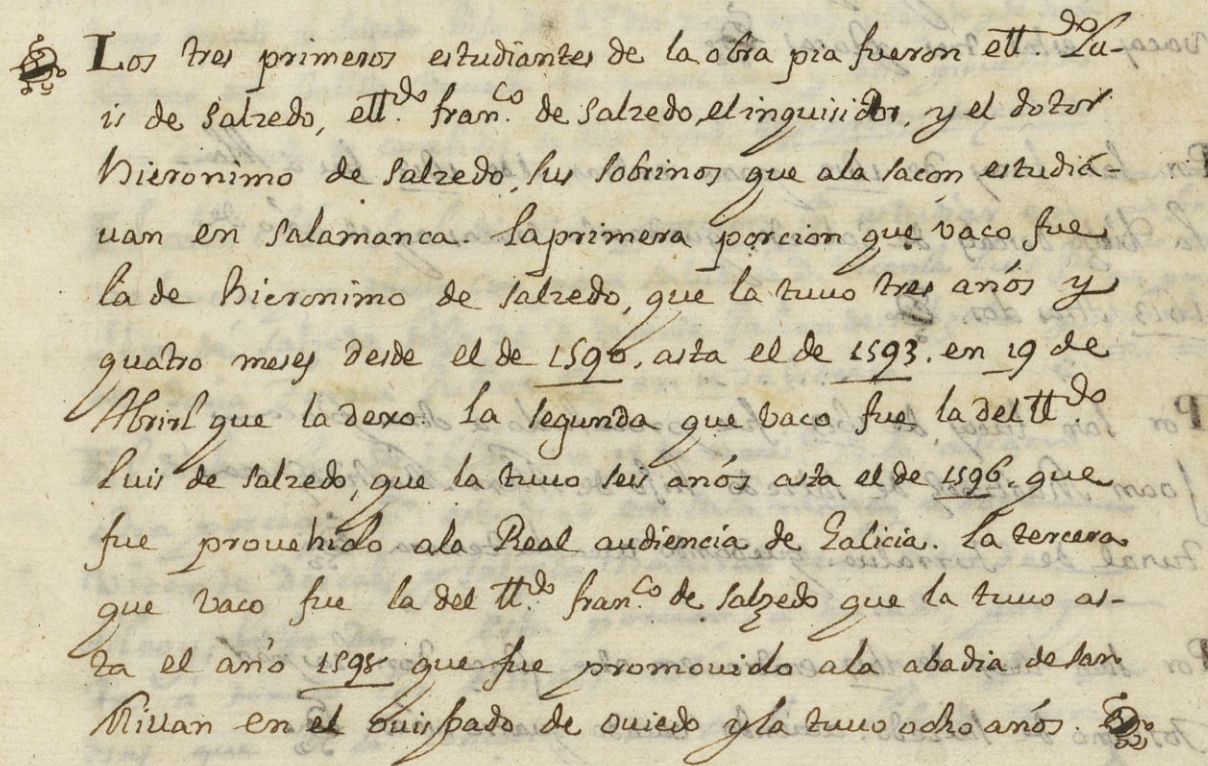 Los tres primeros estudiantes de la obra pia fueron el ll.do Lu-
is de Salzedo, el ll.do fran.co de Salzedo, el inquisidor, y el dotor
Hieronimo de Salzedo, sus sobrinos que ala sacon estudia-
uan en Salamanca. La primera porcion que vaco fue
la de Hieronimo de Salzedo, que la tuuo tres años y
quatro meses desde el de 1590. asta el de 1593. en 19 de
Abril que la dexo. La segunda que vaco fue la del ll.do
Luis de Salzedo, que la tuuo seis años asta el de 1596. que
fue prouehido ala Real audiencia de Galicia. La tercera
que vaco fue la del ll.do fran.co de Salzedo que la tuuo as-
ta el año 1598 que fue promouido ala abadia de san
Millan en el ouispado de ouiedo y la tuuo ocho años.